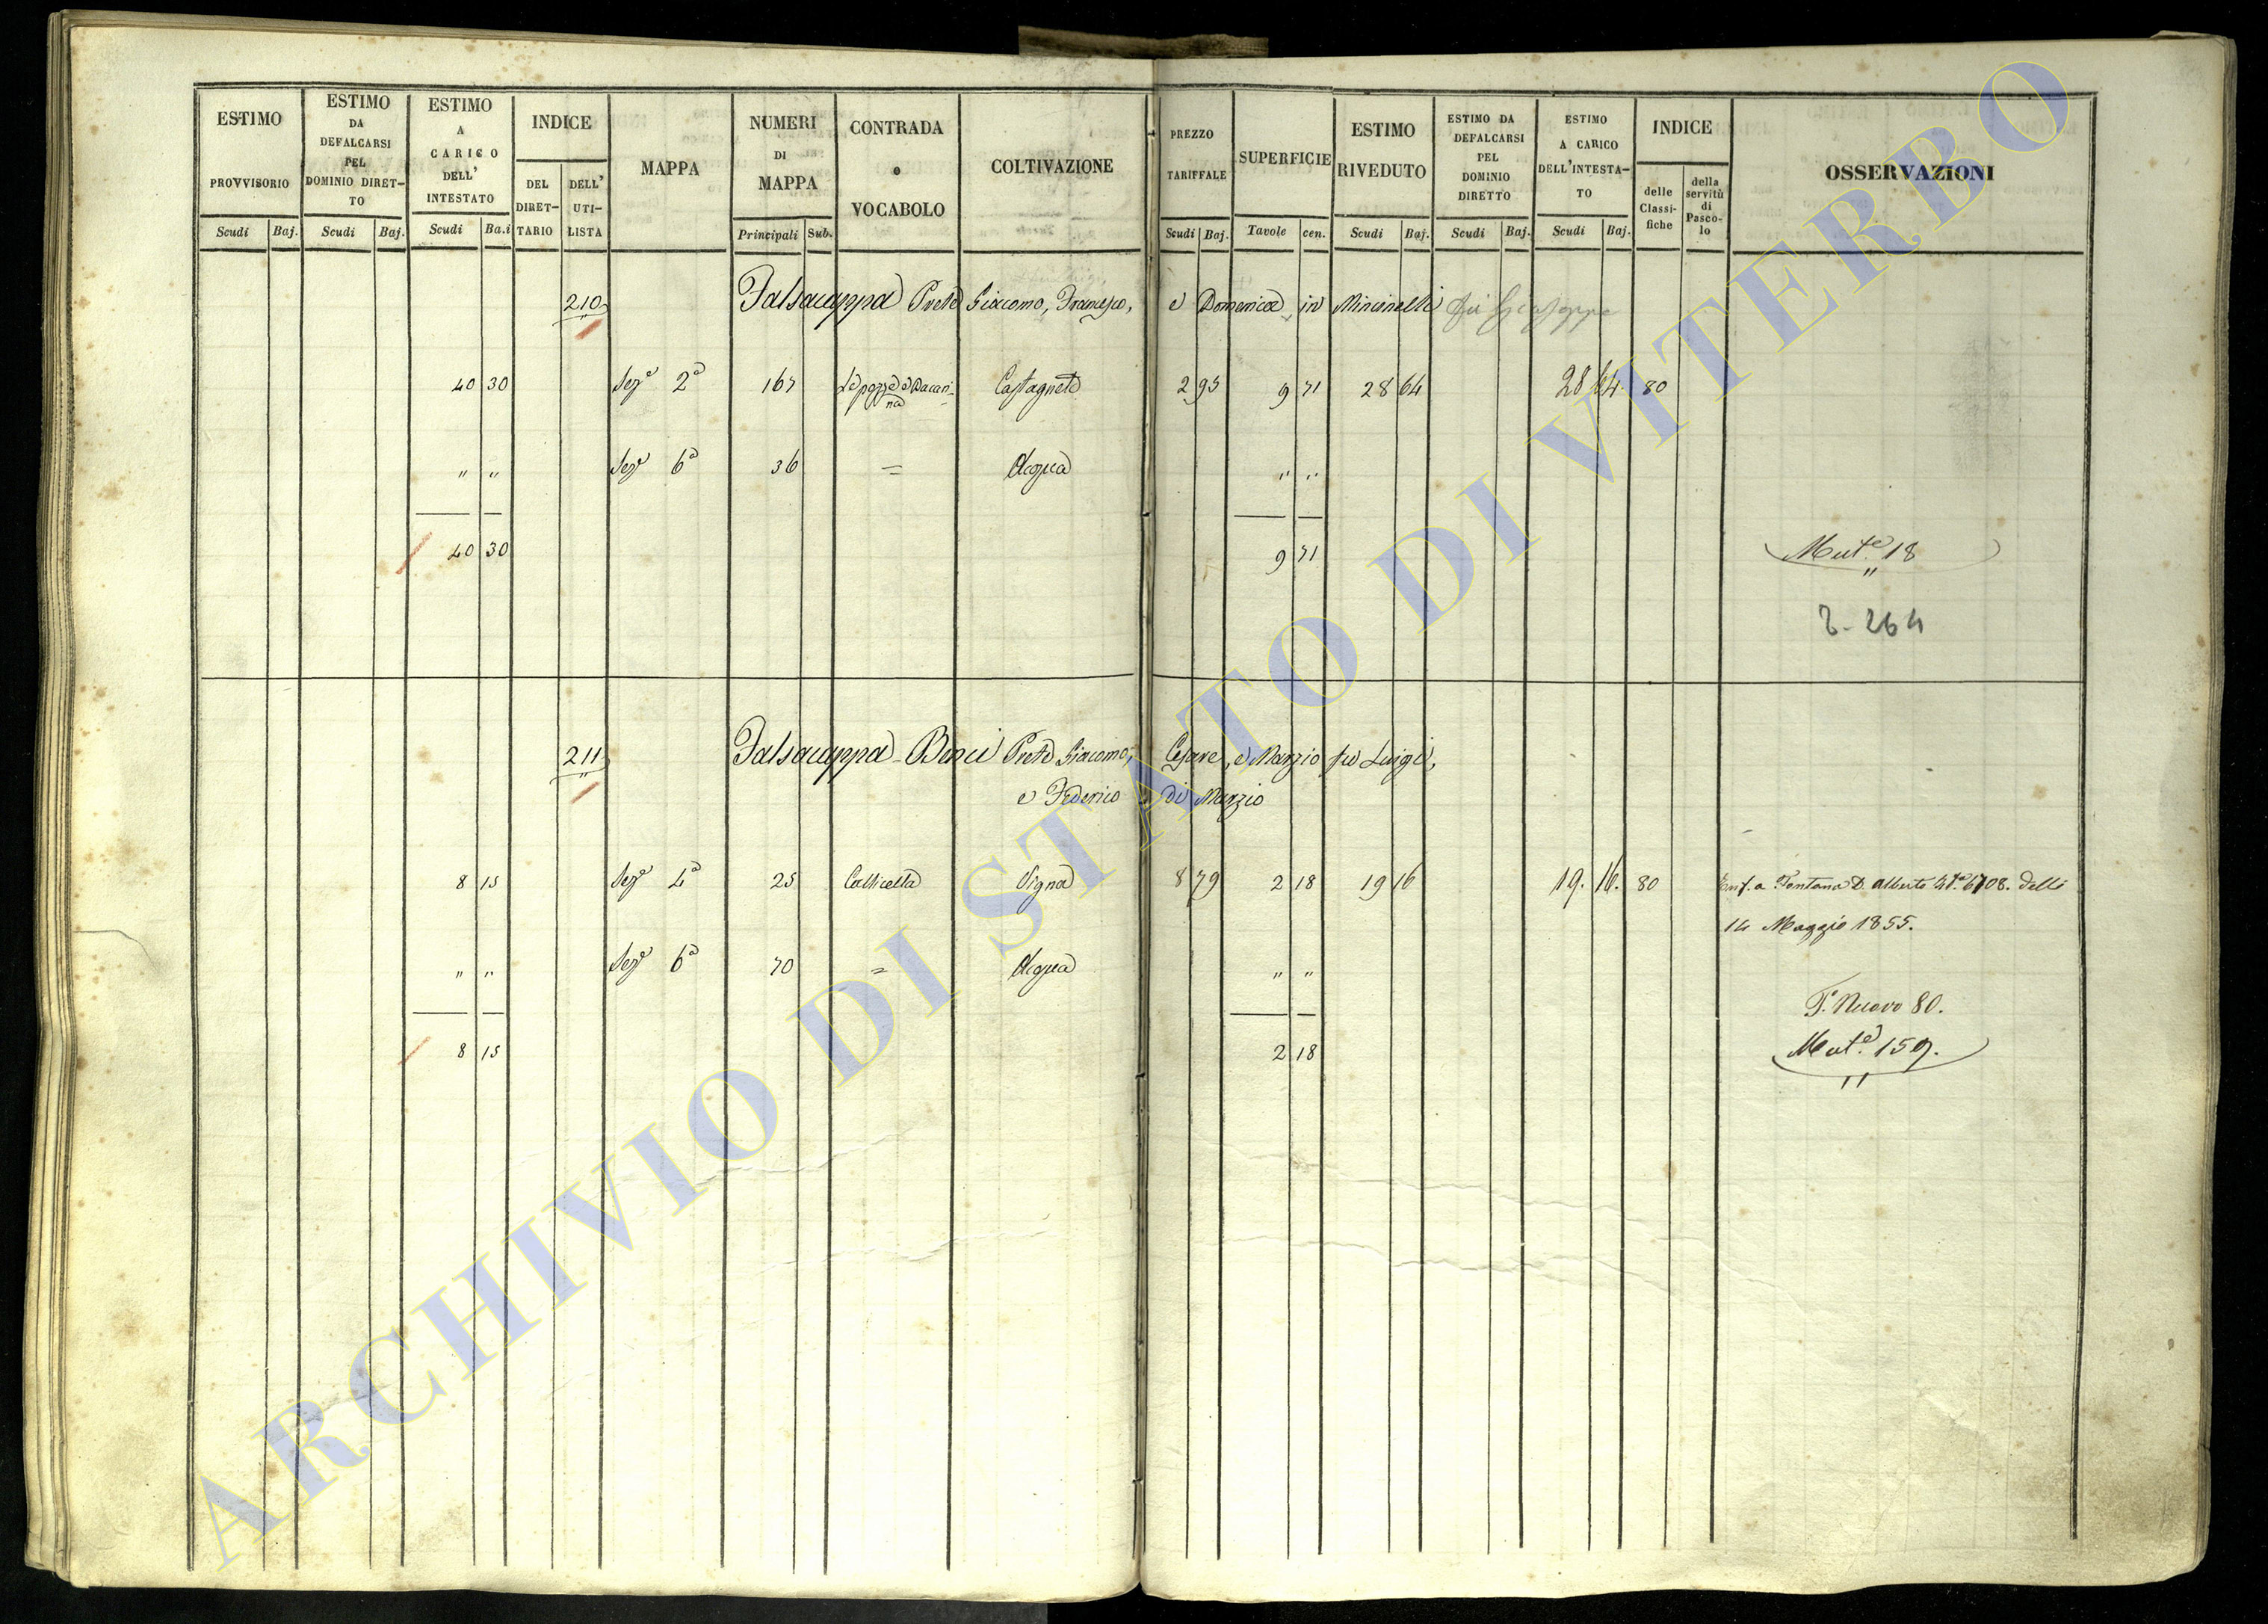 ESTIMO PROVVISORIO
ESTIMO DA DEFALCARSI PEL DOMINIO DIRET-TO
ESTIMO A CARICO DELL' INTESTATO
INDICE
DEL DIRET-TARIO
DELL' UTI-LISTA
MAPPA
NUMERI DI MAPPA
CONTRADA o VOCABOLO
COLTIVAZIONE
PREZZO TARIFFALE
SUPERFICIE
ESTIMO RIVEDUTO
ESTIMO DA DEFALCARSI PEL DOMINIO DIRETTO
ESTIMO A CARICO DELL'INTESTA-TO
INDICE
delle Classi-fiche
della servitù di Pasco-lo
OSSERVAZIONI
Scudi Baj. Scudi Baj. Scudi Ba.i Principali Sub. Scudi Baj. Tavole cen. Scudi Baj. Scudi Baj. Scudi Baj.
210 Falsacappa Prete Giacomo, Francesco, e Domenica in Mincinelli fu Giuseppe
40 30 Sez.e 2a 167 Castagneto 2 95 9 71 28 64 28 64. 80
" " Sez.e 6a 36 = Acqua " "
40 30 9 71 Mut.e 18
264
211 Falsacappa-Benci Prete Giacomo, Cesare, e Marzio fu Luigi,
e Federico di Marzio
8 15 Sez.e 4a 25 Collicella Vigna 8 79 2 18 19 16 19. 16. 80 a Fontana D. Alberto 6708. delli
14 Maggio 1855.
" " Sez.e 6a 70 = Acqua " "
T. Nuovo 80.
8 15 2 18 Mut.e 159.
ARCHIVIO DI STATO DI VITERBO